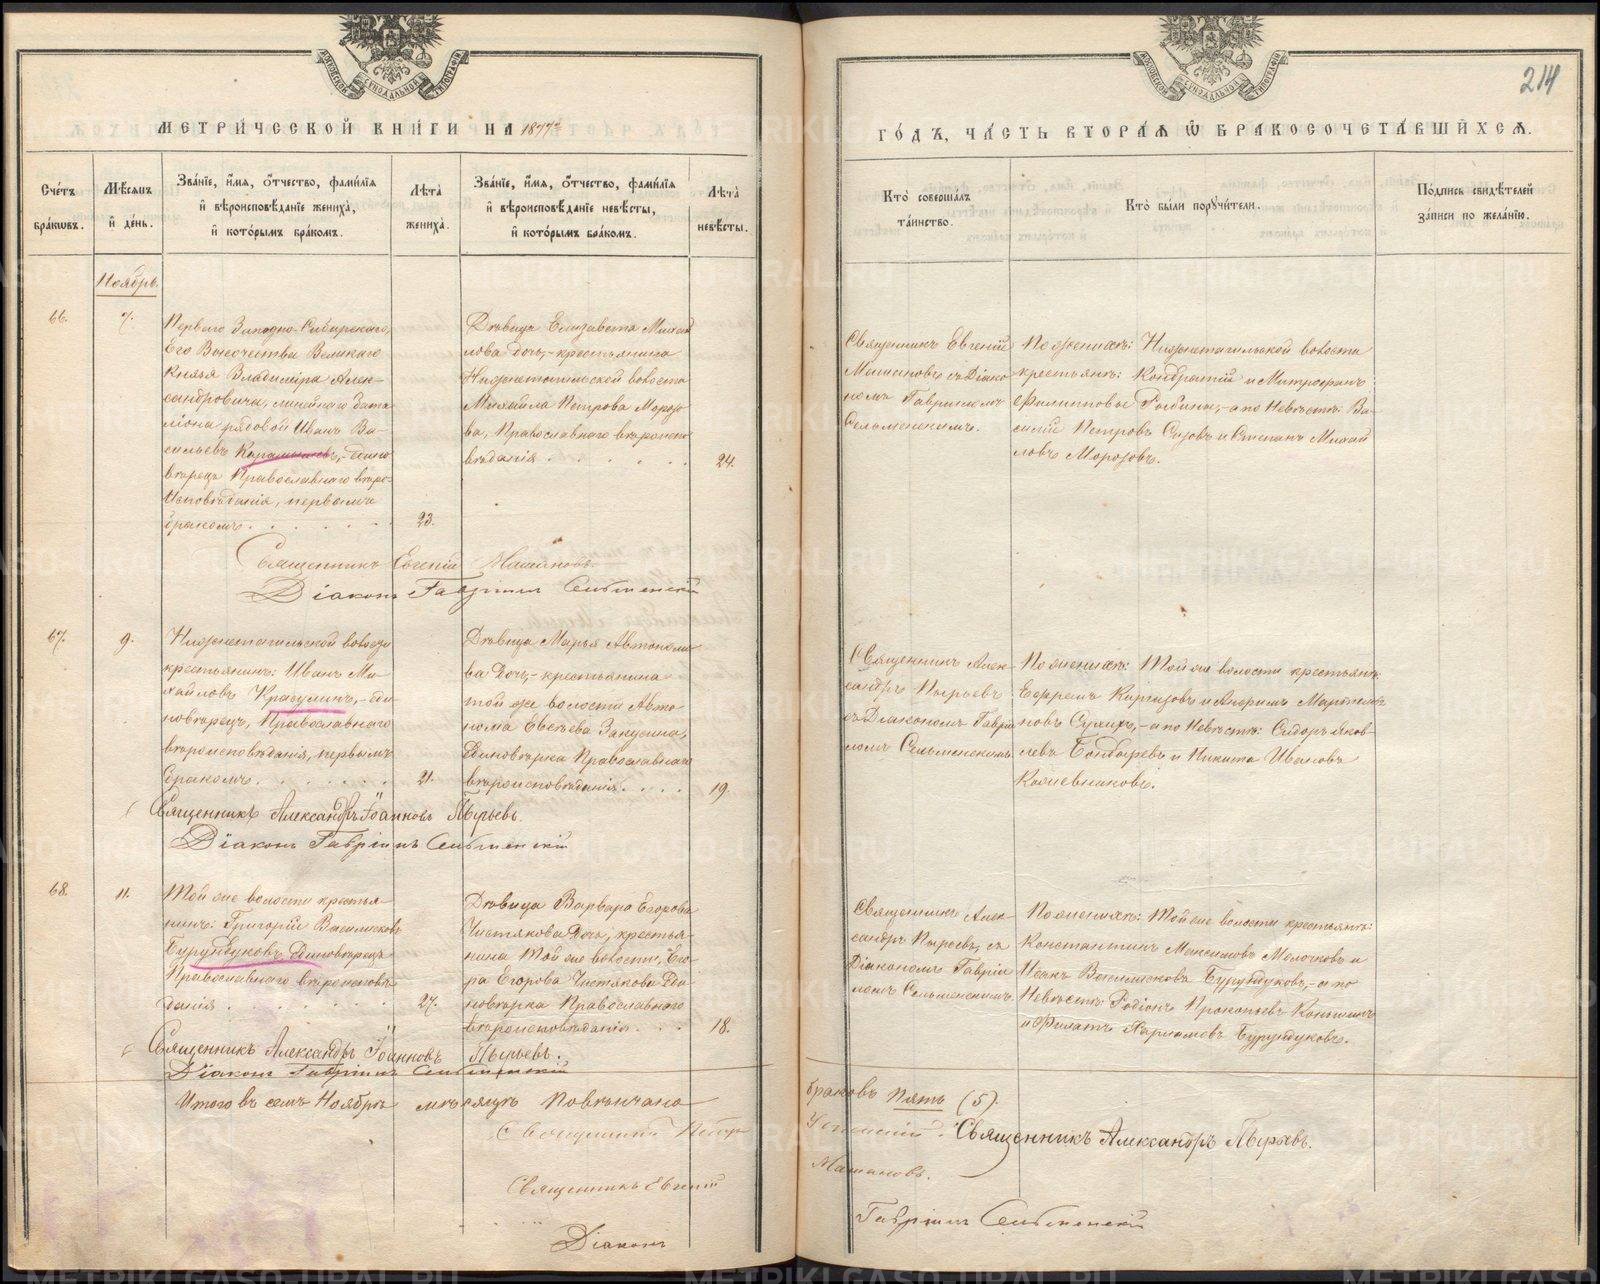 МОСКОВСКОЙ СѴНОДАЛЬНОЙ ТИПОГРАФІИ
МОСКОВСКОЙ СѴНОДАЛЬНОЙ ТИПОГРАФІИ
214
МЕТРИЧЕССКОЙ КНИГИ НА 1877й
ГОДЪ, ЧАСТЬ ВТОРАЯ Ѿ БРАКОСОЧЕТАВШИХСЯ.
Счетъ браковъ.
Мѣсяцъ и день.
Званіе, имя, отчество, фамилія и вѣроисповѣданіе жениха, и которымъ бракомъ.
Лѣта жениха.
Званіе, имя, отчество, фамилія и вѣроисповѣданіе невѣсты, и которымъ бракомъ.
Лѣта невѣсты.
Кто совершалъ таинство.
Кто были поручители.
Подпись свидѣтелей записи по желанію.
Ноябрь.
66.
7.
Перваго Западно-Сибирскаго,
Его Высочества Великаго
Князя Владиміра Алек-
сандровича, линейнаго бата
ліона рядовой Иванъ Ва-
сильевъ Карамышевъ, - едино
вѣрецъ Православнаго вѣро-
исповѣданія, первымъ
бракомъ . . . . . .
23.
Дѣвица Елизавета Михай
лова дочь, - крестьянина
Нижнетагильской волости
Михаила Петрова Морозо
ва, Православнаго вѣроиспо
вѣданія . . . . . .
24.
Священникъ Евгеній
Машановъ съ Діако
номъ Гавріиломъ
Сельменскимъ.
По женихѣ: Нижнетагильской волости
крестьяне: Кондратій и Митрофанъ
Филипповы Рябины, - а по Невѣстѣ: Ва-
силій Петровъ Сизовъ и Степанъ Михай
ловъ Морозовъ.
Священникъ Евгеній Машановъ.
Діаконъ Гавріилъ Сельменскій
67.
9.
Нижнетагильской волости
крестьянинъ: Иванъ Ми-
хайловъ Красулинъ, - еди
новѣрецъ, Православнаго
вѣроисповѣданія, первымъ
бракомъ . . . . . .
21.
Дѣвица Марья Автономо
ва дочь, - крестьянина
той же волости Авто-
нома Евсѣева Закусина,
Единовѣрка Православнаго
вѣроисповѣданія . . . .
19.
Священникъ Алек-
сандръ Пырьевъ
съ Діакономъ Гаврі
ломъ Сельменскимъ
По женихѣ: Той же волости крестьяне:
Ефремъ Киргизовъ и Андрей Мартемь
новъ Сухихъ, - а по Невѣстѣ: Сидоръ Яков-
левъ Бондаревъ и Никита Ивановъ
Кожевниковъ.
Священникъ Александръ Іоанновъ Пырьевъ.
Діаконъ Гавріилъ Сельменскій
68.
11.
Той же волости крестья-
нинъ: Григорій Васильевъ
Бурундуковъ Единовѣрецъ
Православнаго вѣроисповѣ
данія . . . . . .
27.
Дѣвица Варвара Егорова
Чистякова дочь, крестья-
нина Той же волости, Его-
ра Егорова Чистякова Еди
новѣрка Православнаго
вѣроисповѣданія . . .
18.
Священникъ Алек-
сандръ Пырьевъ, съ
Діакономъ Гавріи
ломъ Сельменскимъ
По женихѣ: Той же волости крестьяне:
Константинъ Максимовъ Молочковъ и
Исаакъ Васильевъ Бурундуковъ, - а по
Невѣстѣ: Родіонъ Прокопьевъ Коньшинъ
и Филатъ Харламовъ Бурундуковъ.
Священникъ Александръ Іоанновъ Пырьевъ.
Діаконъ Гавріилъ Сельменскій
Итого въ семъ Ноябрѣ мѣсяцѣ повѣнчано браковъ пять (5).
Священникъ Петръ Успенскій. Священникъ Александръ Пырьевъ.
Священникъ Евгеній Машановъ.
Діаконъ Гавріилъ Сельменскій
METRIKI.GASO-URAL.RU